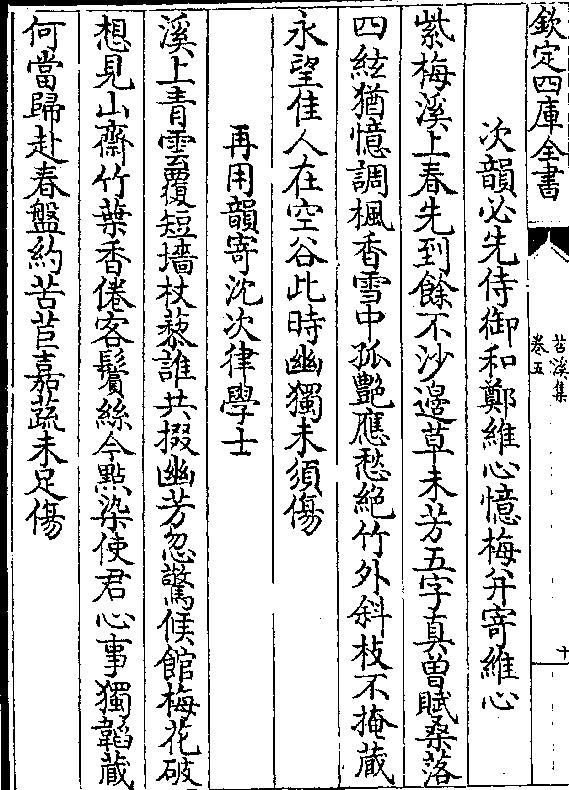 欽定四庫全書
苕溪集
卷五
十
次韻必先侍御和鄭維心憶梅并寄維心
紫梅溪上春先到餘不沙邉草未芳五字真曽賦桑落
四絃猶憶調楓香雪中孤艷應愁絶竹外斜枝不掩蔵
永望佳人在空谷此時幽獨未須傷
再用韻寄沈次律學士
溪上青雲覆短墻杖藜誰共掇幽芳忽驚候館梅花破
想見山齋竹葉香倦客鬢絲今點染使君心事獨韜蔵
何當歸赴春盤約苦苣嘉蔬未足傷